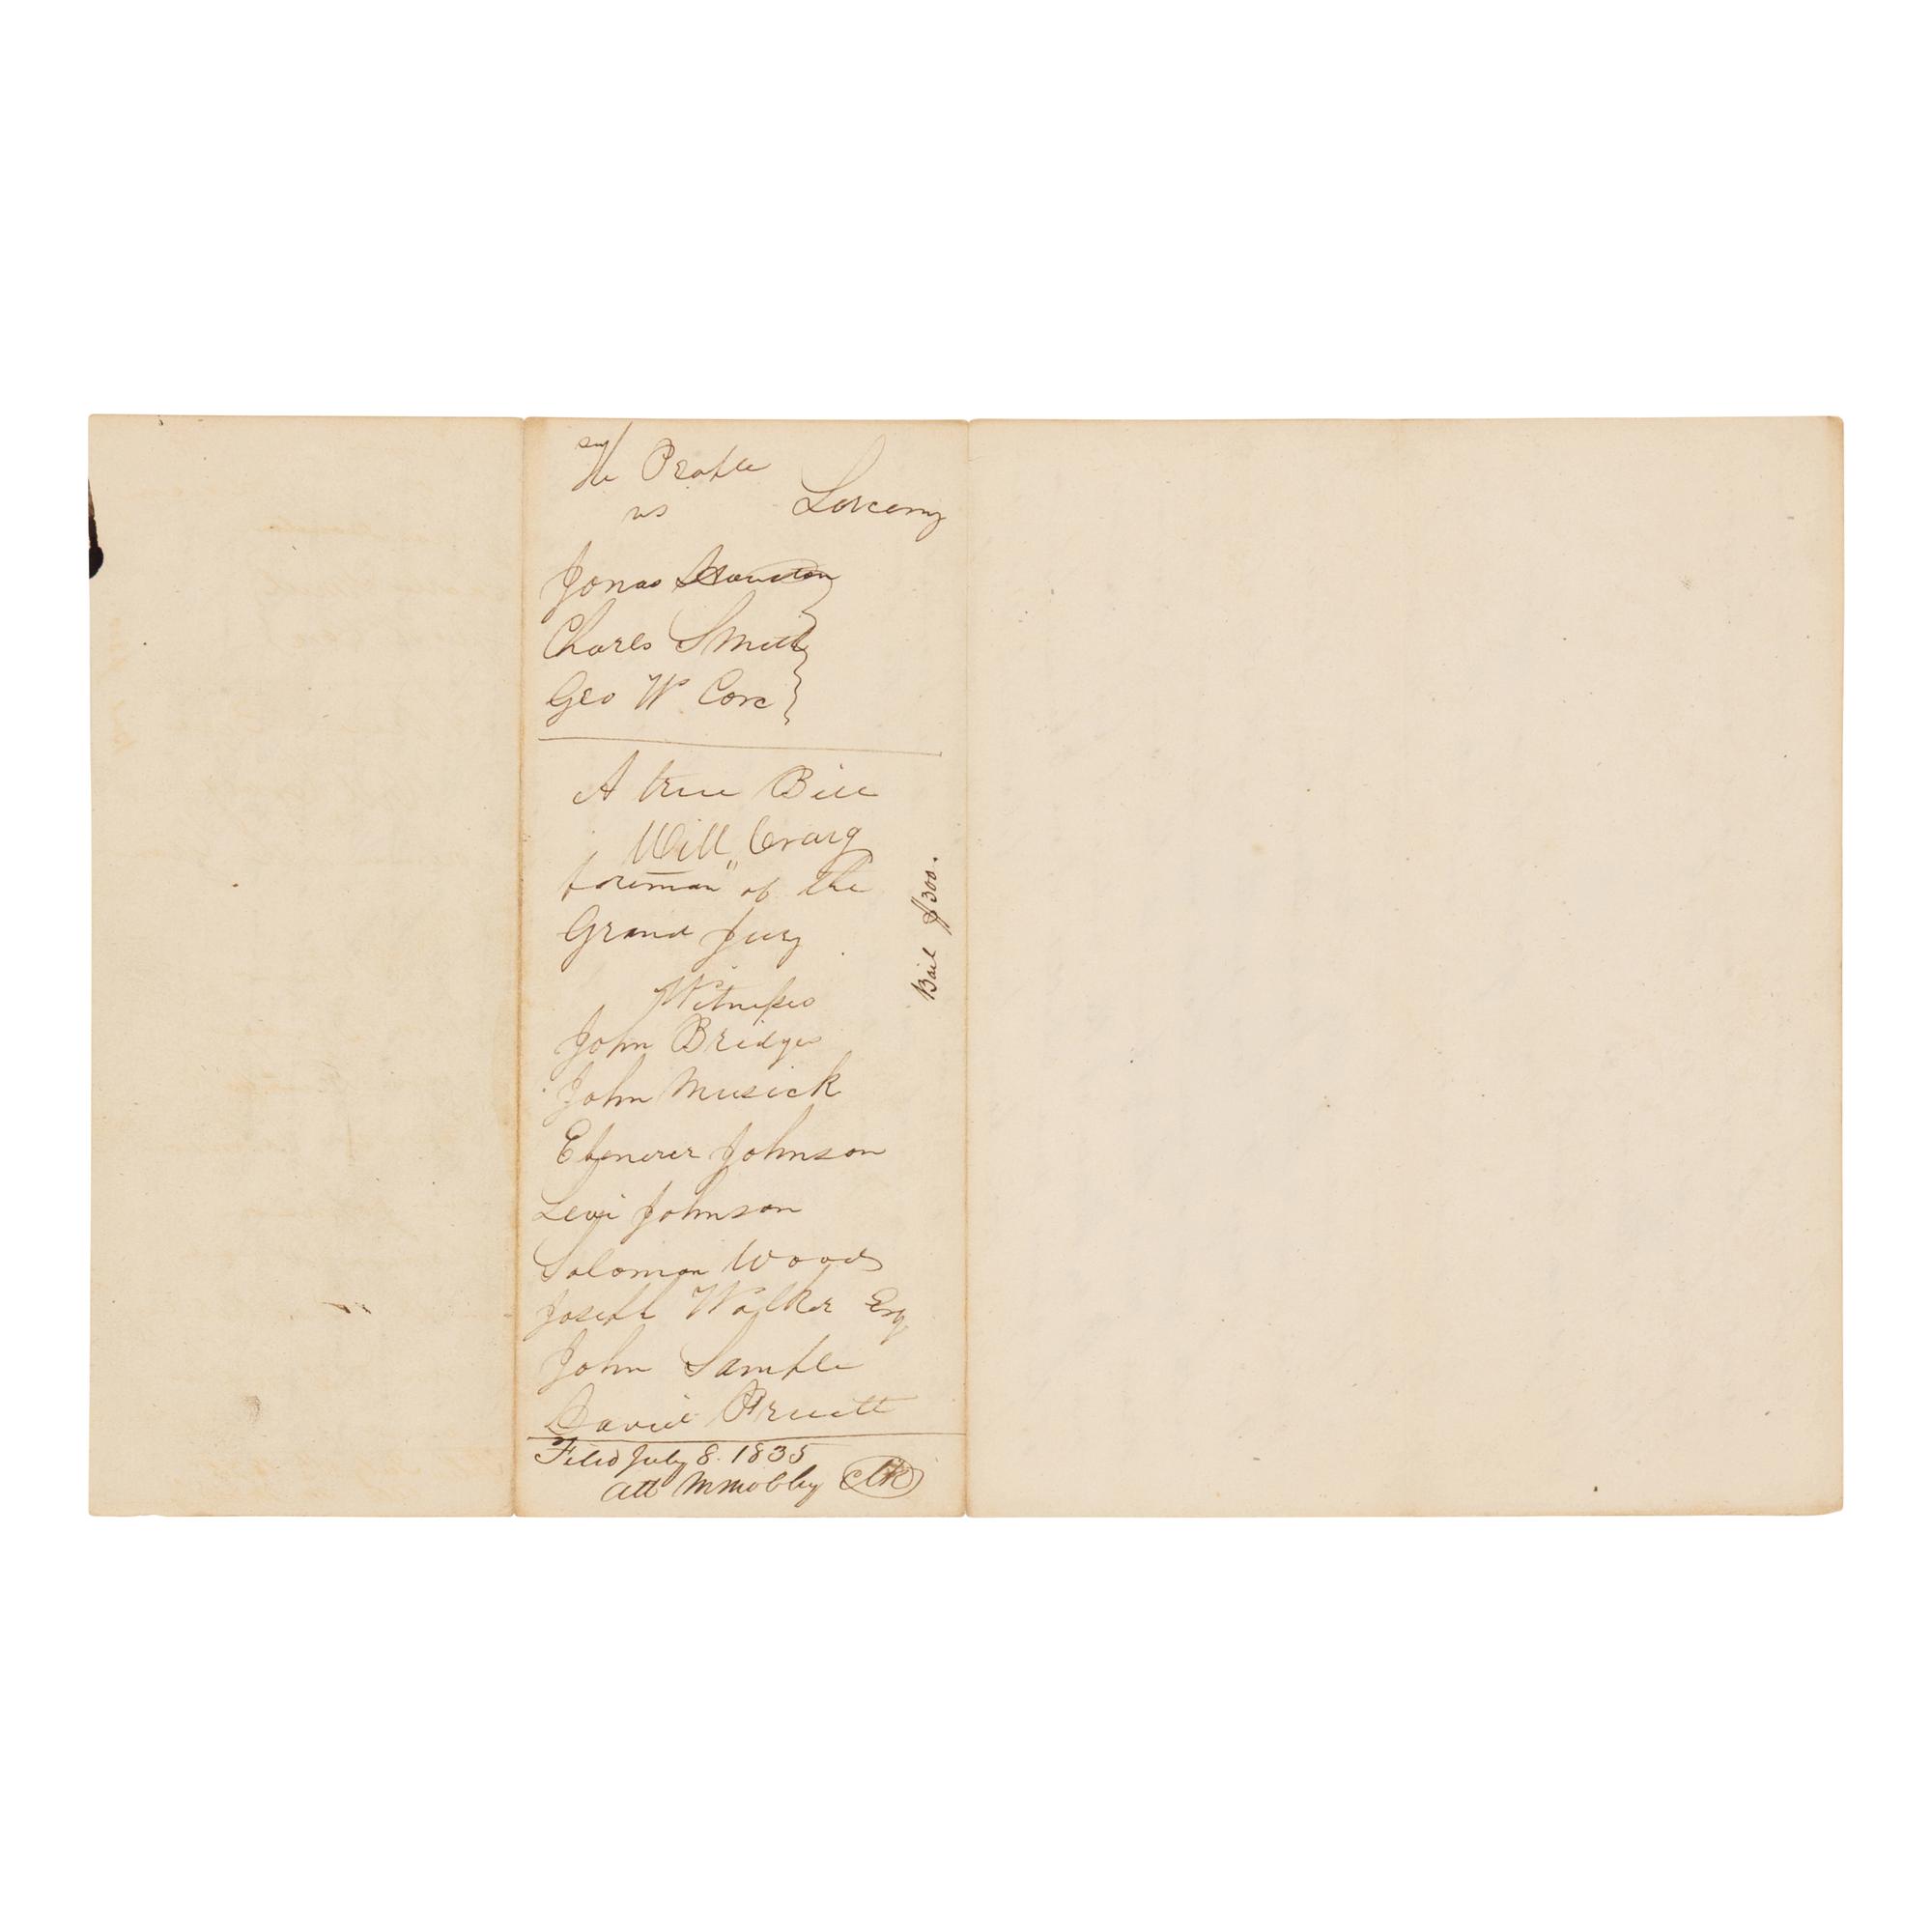 The People
vs Larceny
Jonas
Charles Smith
Geo W Core
A true Bill
Will Craig
foreman of the
Grand Jury
Bail $300.
Witnesses
John Bridges
John Musick
Ebenezer Johnson
Levi Johnson
Solomon Woods
Joseph Walker Esq
John Sample
David Pruitt
Filed July 8. 1835
Att M Mobley Clk